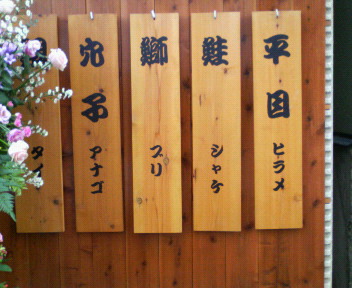 平目 ヒラメ
鮭 シャケ
鰤 ブリ
穴子 アナゴ
タイ